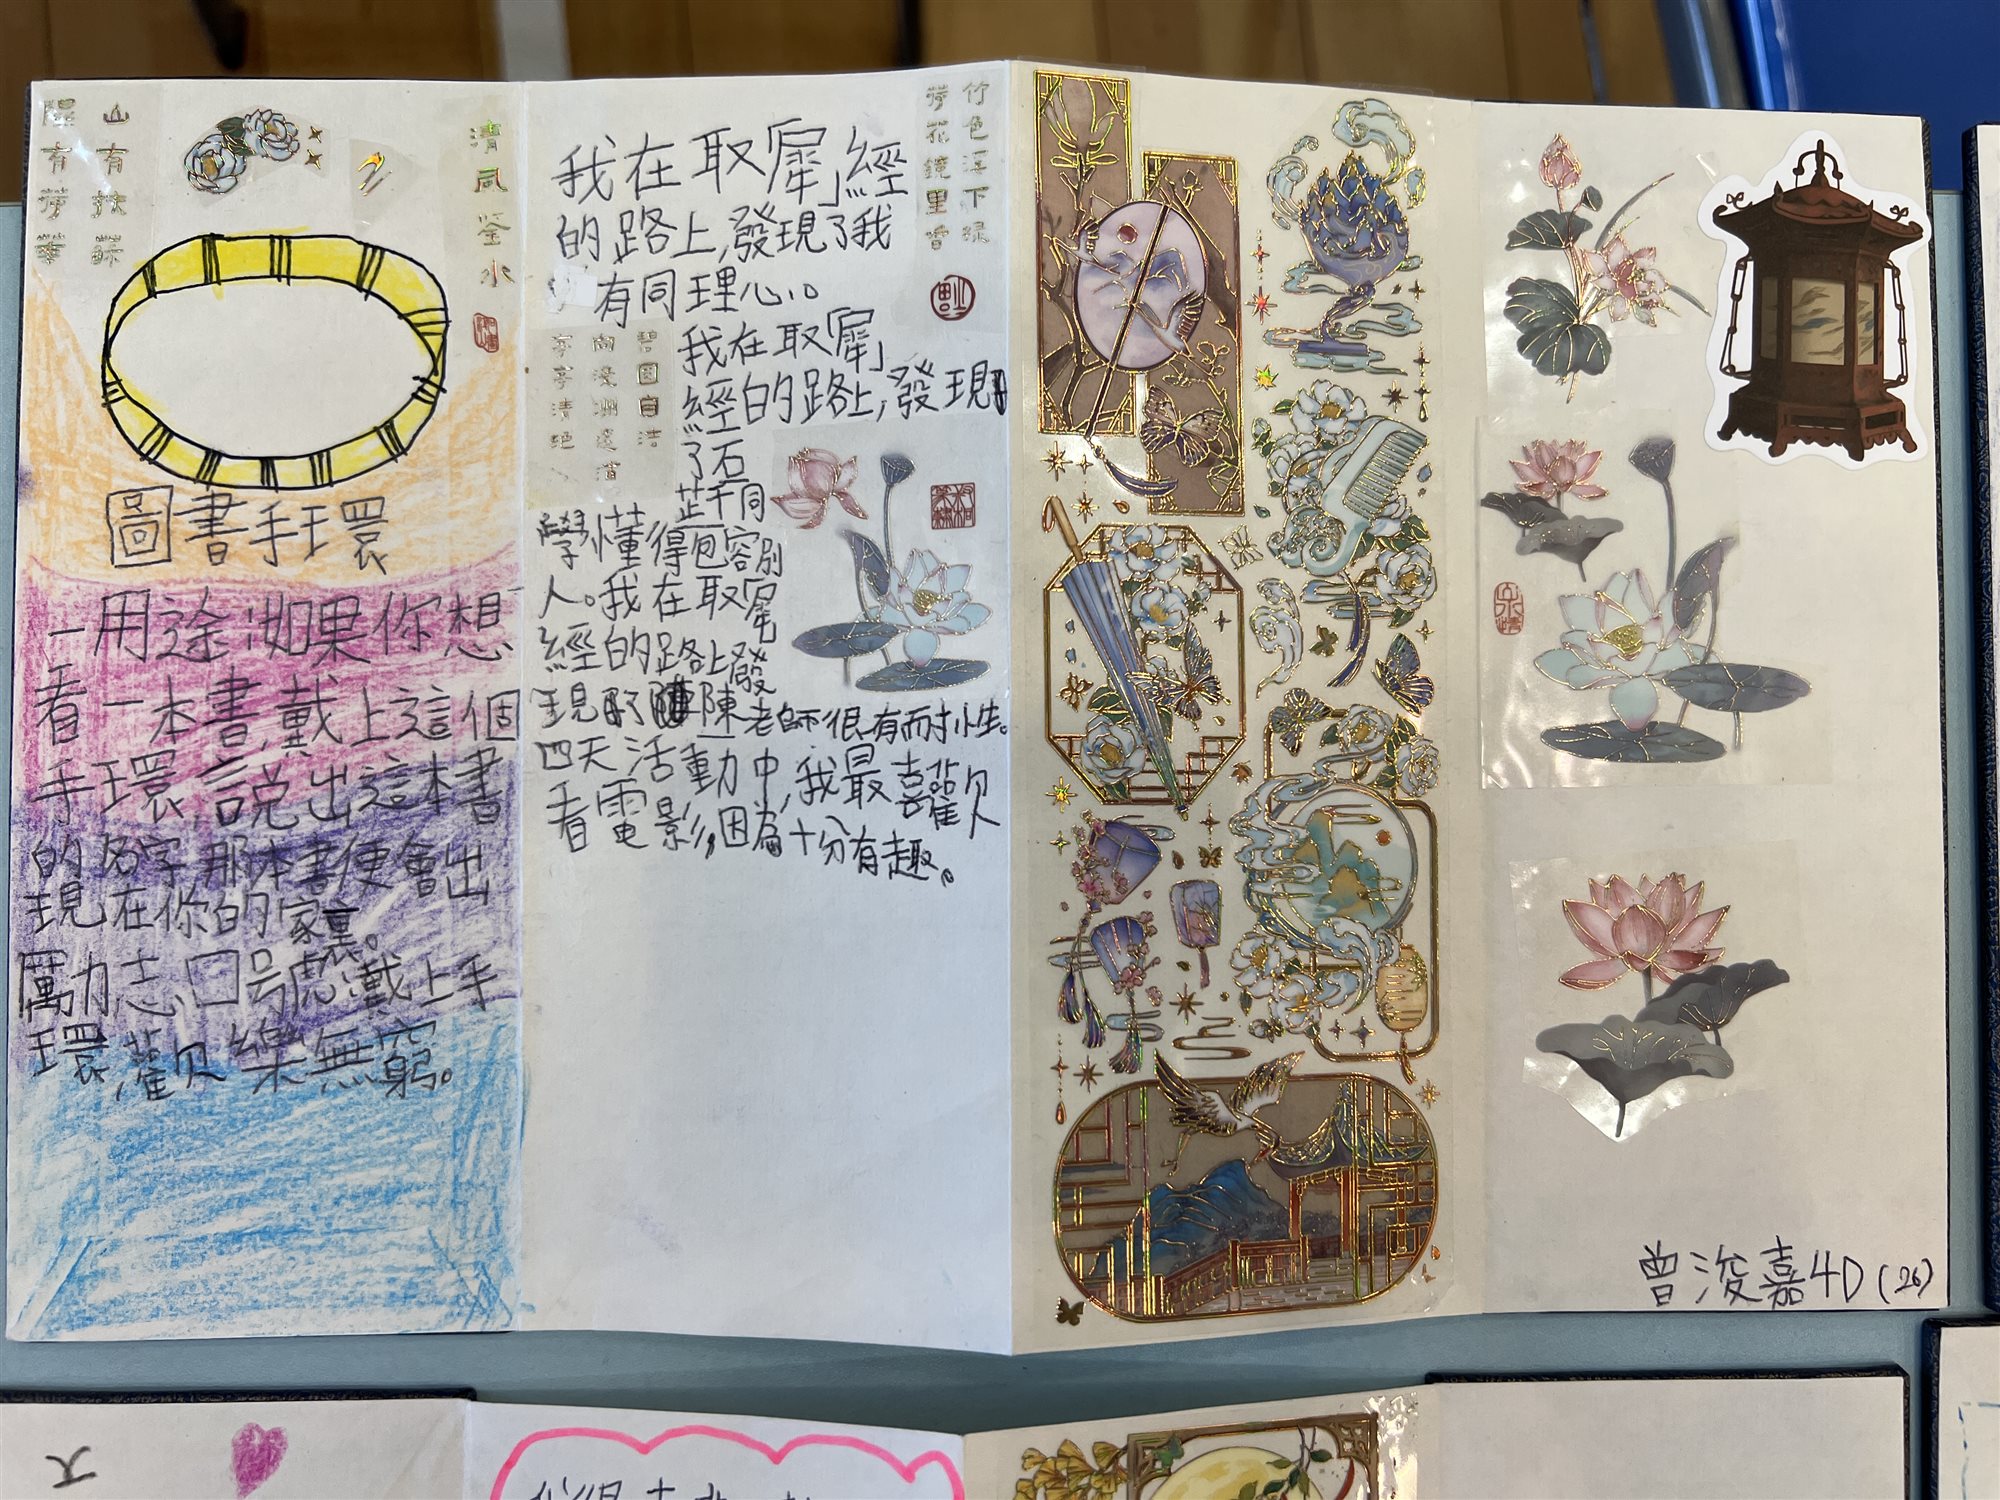 山有扶蘇
隰有荷華
清風荃水
圖書手環
用途:如果你想
看一本書,戴上這個
手環,說出這本書
的名字,那本書便會出
現在你的家裏。
厲力志口号虎:戴上手
環,歡樂無窮。
竹色浮下綠
荷花鏡里香
我在取犀」經
的路上,發現了我
有同理心。
我在取犀」
經的路上,發現
了石
芷千同
學懂得包容別
人。我在取犀
經的路上發
現了陳老師很有耐小生。
四天活動中,我最喜歡
看電影,因為十分有趣。
碧圓自潔
向淺洲遠渚
亭亭清絕
曾浚嘉4D(26)